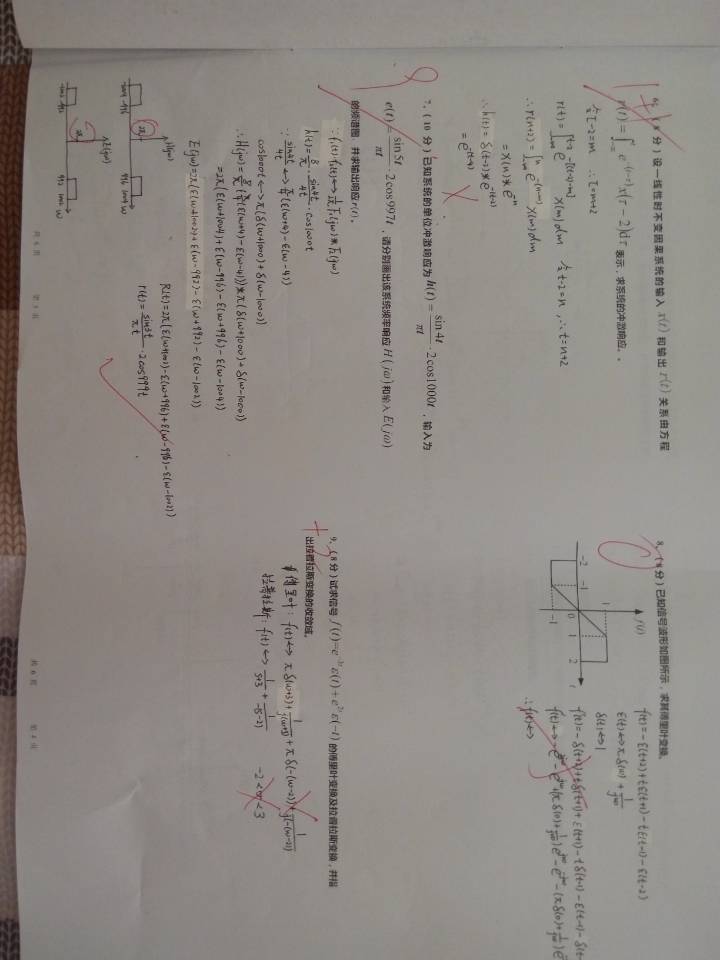 6、（8 分）设一线性时不变因果系统的输入 x(t) 和输出 r(t) 关系由方程
r(t)=∫_{-∞}^{t} e^{-(t-τ)}x(τ-2)dτ 表示，求系统的冲激响应。。
令τ-2=m ∴τ=m+2
r(t)=∫_{-∞}^{t-2} e^{-[(t-2)-m]} x(m)dm 令t-2=n ,∴t=n+2
∴r(n+2)=∫_{-∞}^{n} e^{-(n-m)} x(m)dm
=x(n)*e^{-n}
∴h(t)=δ(t-2)*e^{-(t-2)}
=e^{-(t-4)}
7、（10 分）已知系统的单位冲激响应为 h(t)=sin4t/πt·2cos1000t，输入为
e(t)=sin5t/πt·2cos997t，请分别画出该系统频率响应 H(jω)和输入 E(jω)
的频谱图，并求输出响应 r(t)。
∵f₁(t)·f₂(t)↔1/2π F₁(jω)*F₂(jω)
h(t)=8/π·sin4t/4t·cos1000t
∵sin4t/4t↔π/4(ε(ω+4)-ε(ω-4))
cos1000t↔π(δ(ω+1000)+δ(ω-1000))
∴H(jω)=8/π(π/4(ε(ω+4)-ε(ω-4))*π(δ(ω+1000)+δ(ω-1000))
=2π(ε(ω+1004)+ε(ω-996)-ε(ω+996)-ε(ω-1004))
E(jω)=2π(ε(ω+1002)+ε(ω-992)-ε(ω+992)-ε(ω-1002))
H(jω)
2π
-1004 -996 996 1004 ω
E(jω)
2π
-1002 -992 992 1002 ω
R(t)=2π(ε(ω+1002)-ε(ω+996)+ε(ω-996)-ε(ω-1002))
r(t)=sin3t/πt·2cos999t
共 6 页 第 3 页
8、（8 分）已知信号波形如图所示，求其傅里叶变换。
f(t)
1
-2 -1 0 1 2 t
-1
f(t)=-ε(t+2)+tε(t+1)-tε(t-1)-ε(t-2)
ε(t)↔πδ(ω)+1/jω
δ(t)↔1
f'(t)=-δ(t+2)+tδ(t+1)+ε(t+1)-tδ(t-1)-ε(t-1)-δ(t-
∴f(t)↔
9、（8 分）试求信号 f(t)=e^{-3t}ε(t)+e^{2t}ε(-t) 的傅里叶变换及拉普拉斯变换，并指
出拉普拉斯变换的收敛域。
+3
傅里叶：f(t)↔πδ(ω+3)+1/j(ω+3)+πδ(-(ω-2))+1/j(-(ω-2))
拉普拉斯：f(t)↔1/s+3+1/-(s-2)
-2<σ<3
共 6 页 第 4 页